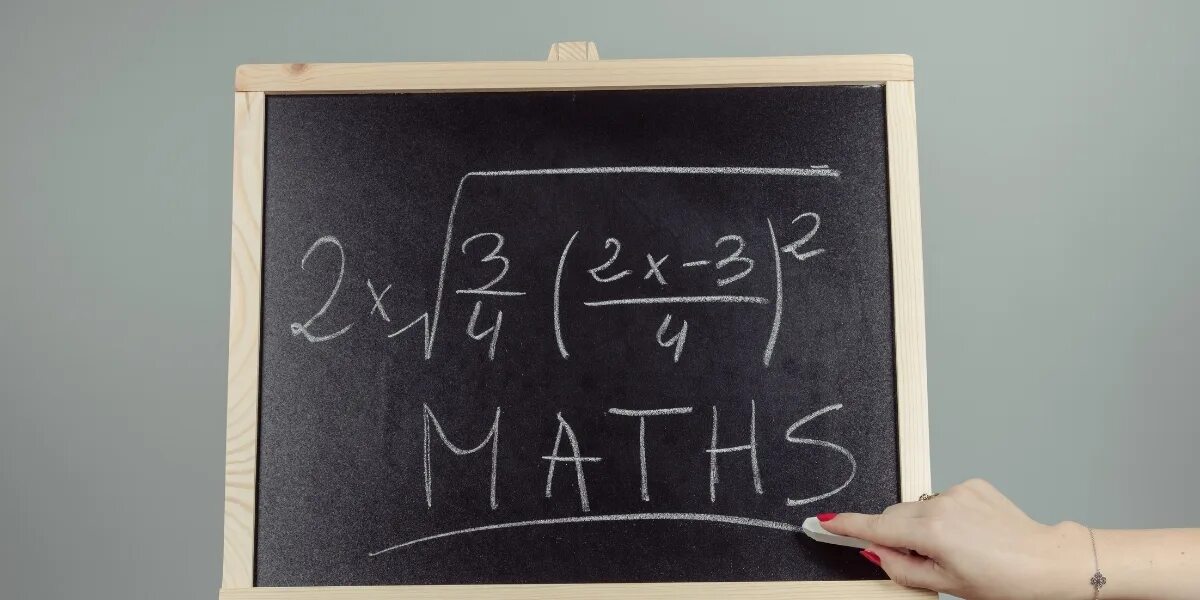 2x√(3/4 ((2x-3)/4)²)
MATHS